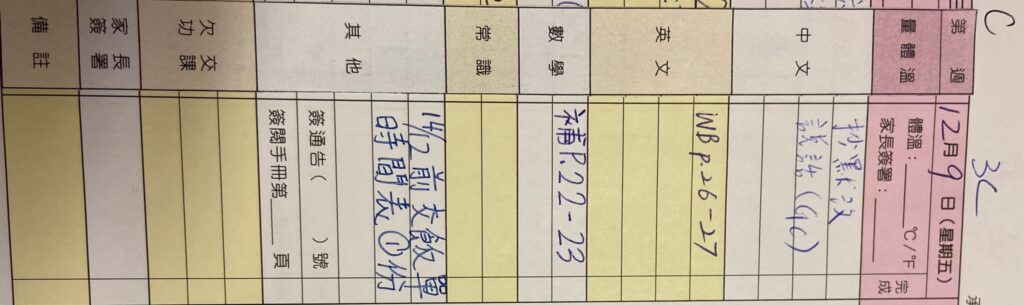 C
3C
第 週
12月9日(星期五)
量體溫
體溫:____℃/℉
家長簽署:____
完成
中文
抄默改
說話(9C)
英文
WB p.26-27
數學
補P.22-23
常識
其他
14/12前交飯單
時間表①份
簽通告( )號
簽閱手冊第____頁
欠交功課
家長簽署
備註